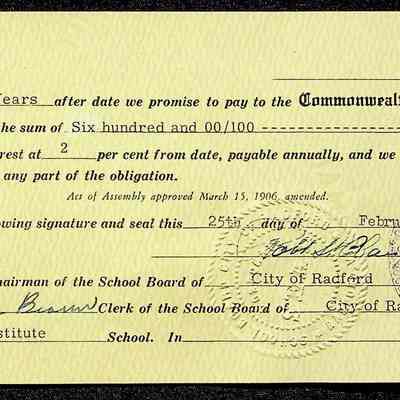 Years after date we promise to pay to the Commonweal
the sum of Six hundred and 00/100
rest at 2 per cent from date, payable annually, and we
any part of the obligation.
Act of Assembly approved March 15, 1906, amended.
owing signature and seal this 25th day of Febru
Chairman of the School Board of City of Radford
Clerk of the School Board of City of Ra
stitute School. In